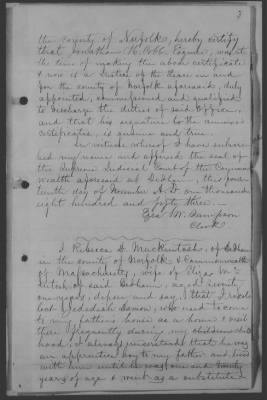 3
the County of Norfolk, hereby certify
that Jonathan H. Cobb Esquire, was at
the time of making the above certificate
& now is a Justice of the Peace in and
for the county of Norfolk aforesaid, duly
appointed, commissioned and qualified
to discharge the duties of said office
and that his signature to the annexed
certificate, is genuine and true.
In witness whereof I have subscri-
bed my name and affixed the seal of
the Supreme Judicial Court of the Common
wealth aforesaid at Dedham, the
teenth day of December A.D. one thousand
eight hundred and forty three.
W. Sampson
Clerk
I Rebecca D. Mackintosh, of Dedham
in the county of Norfolk & Commonwealth
of Massachusetts, wife of Elisha Mc
Intosh of said Dedham, aged
one years, depose and say, that I recol-
lect Jedediah, who used to come
to my father's house as a home & visit
there frequently during my childhood
hood, I always understood that he was
an apprentice boy to my father and lived
with him until he was one and twenty
years of age & went as a substitute